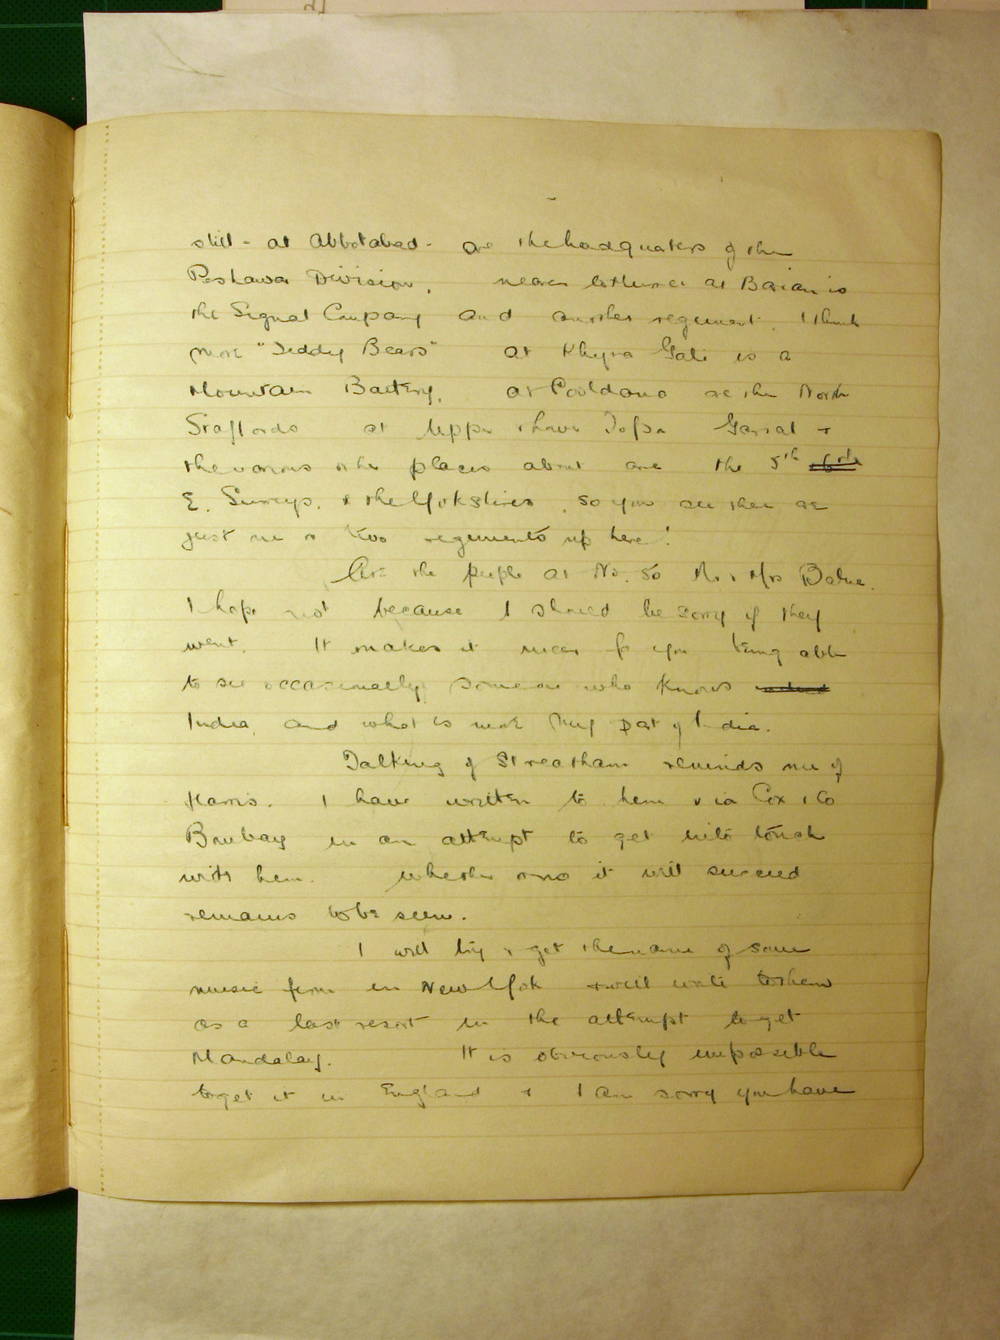 still - at Abbotabad - are the headquaters of the
Peshawar Division. nearer at Barian is
the Signal Company and another regiment, I think
more "Teddy Bears" at Khyra Gali is a
Mountain Battery, at Cooldana are the North
Staffords at Upper Topa Gharial +
the various other places about are the 5th 6th
E. Surreys, & the Yorkshires, so you see there are
just one or two regiments up here!
Are the people at No. 50 Mr & Mrs
I hope not because I should be sorry if they
went. It makes it nicer for you being able
to see occasionally someone who knows
India, and what is more my part of India.
Talking of Streatham reminds me of
Harris. I have written to him via Cox & Co
Bombay in an attempt to get into touch
with him. Whether or no it will succeed
remains to be seen.
I will try & get the name of some
music firm in New York & will write to them
as a last resort in the attempt to get
Mandalay. It is obviously impossible
to get it in England & I am sorry you have